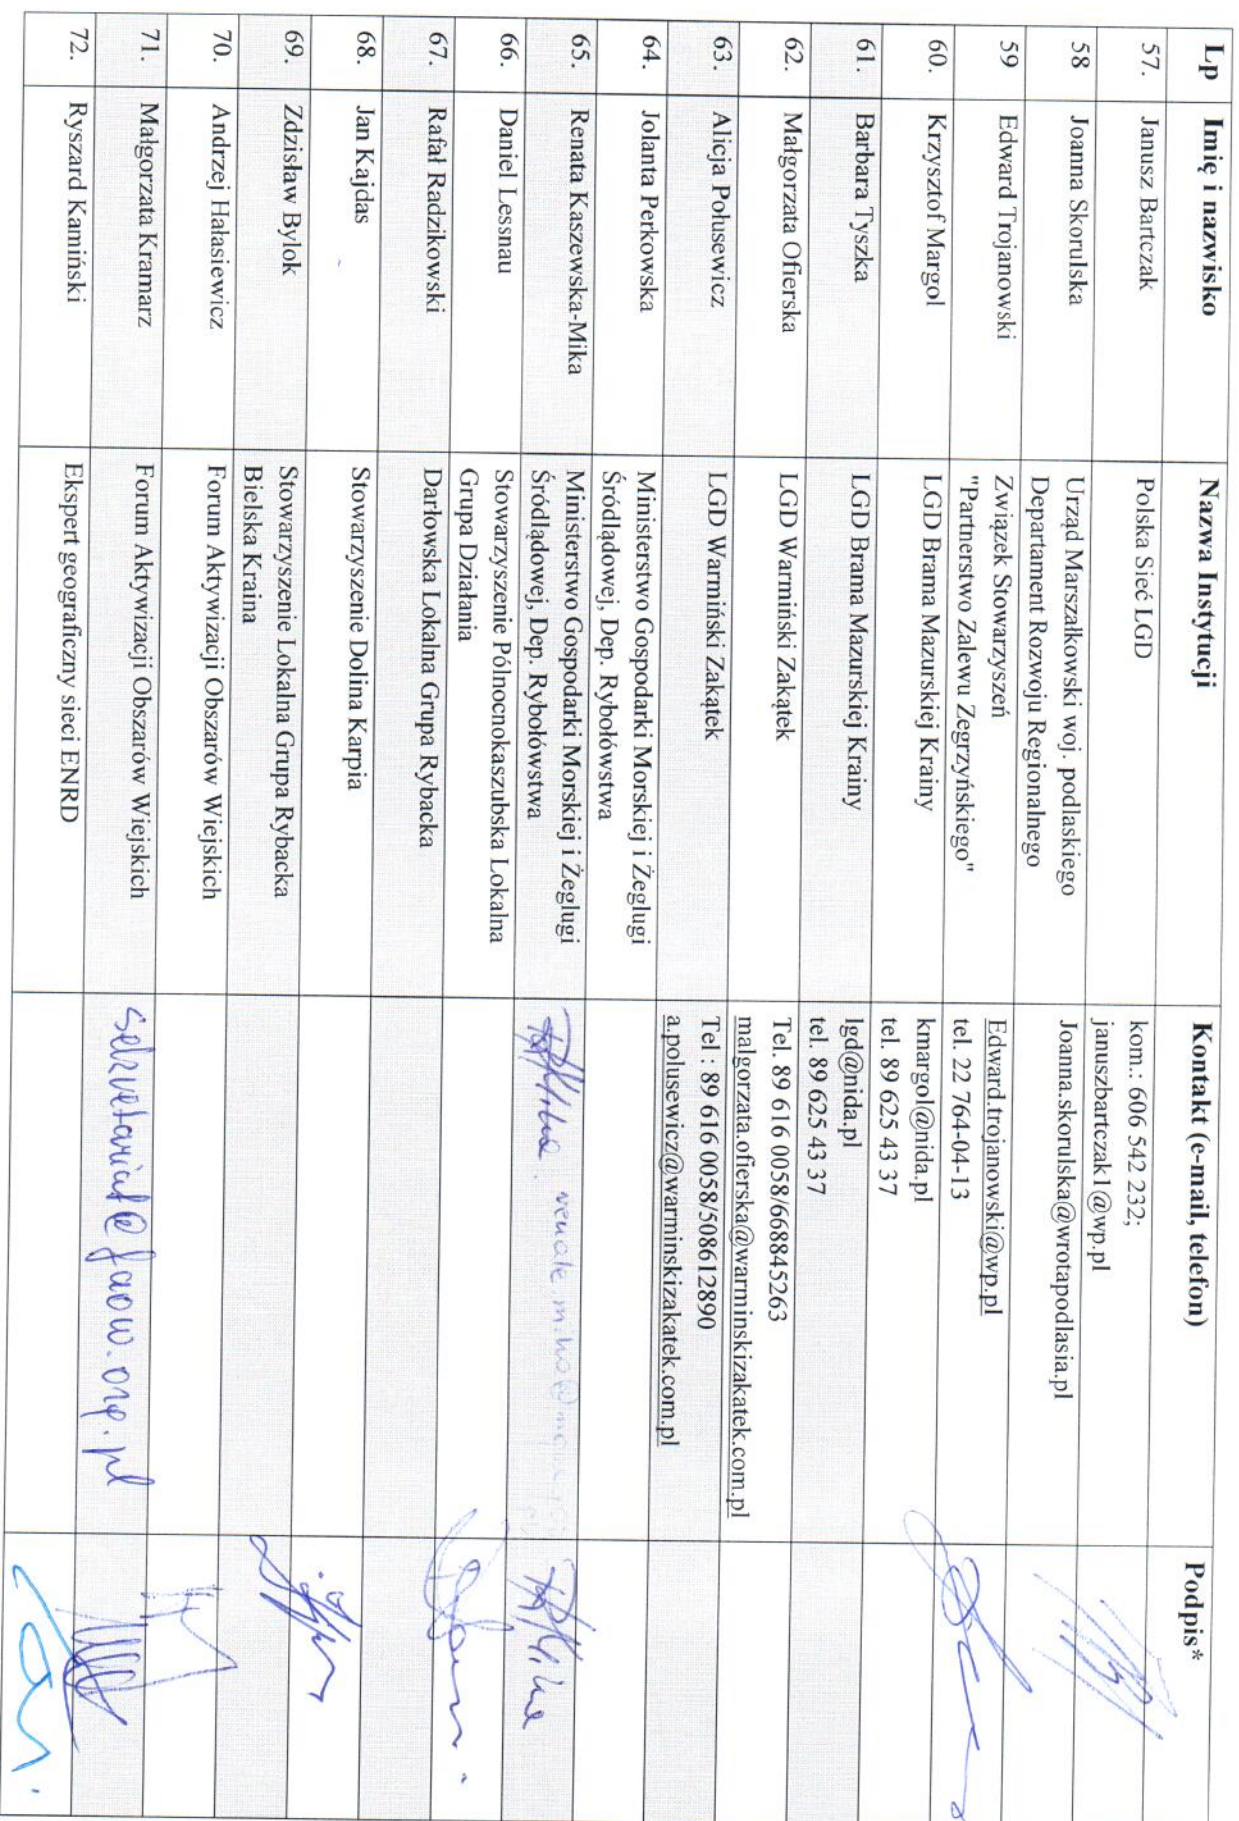 Lp Imię i nazwisko Nazwa Instytucji Kontakt (e-mail, telefon) Podpis*
57. Janusz Bartczak Polska Sieć LGD kom.: 606 542 232;
januszbartczak1@wp.pl
58 Joanna Skorulska Urząd Marszałkowski woj. podlaskiego Joanna.skorulska@wrotapodlasia.pl
Departament Rozwoju Regionalnego
59 Edward Trojanowski Związek Stowarzyszeń Edward.trojanowski@wp.pl
"Partnerstwo Zalewu Zegrzyńskiego" tel. 22 764-04-13
60. Krzysztof Margol LGD Brama Mazurskiej Krainy kmargol@nida.pl
tel. 89 625 43 37
61. Barbara Tyszka LGD Brama Mazurskiej Krainy lgd@nida.pl
tel. 89 625 43 37
62. Małgorzata Ofierska LGD Warmiński Zakątek Tel. 89 616 0058/668845263
malgorzata.ofierska@warminskizakatek.com.pl
63. Alicja Połusewicz LGD Warmiński Zakątek Tel : 89 616 0058/508612890
a.polusewicz@warminskizakatek.com.pl
64. Jolanta Perkowska Ministerstwo Gospodarki Morskiej i Żeglugi
Śródlądowej, Dep. Rybołówstwa
65. Renata Kaszewska-Mika Ministerstwo Gospodarki Morskiej i Żeglugi
Śródlądowej, Dep. Rybołówstwa
66. Daniel Lessnau Stowarzyszenie Północnokaszubska Lokalna
Grupa Działania
67. Rafał Radzikowski Darłowska Lokalna Grupa Rybacka
68. Jan Kajdas Stowarzyszenie Dolina Karpia
69. Zdzisław Bylok Stowarzyszenie Lokalna Grupa Rybacka
Bielska Kraina
70. Andrzej Hałasiewicz Forum Aktywizacji Obszarów Wiejskich
71. Małgorzata Kramarz Forum Aktywizacji Obszarów Wiejskich sekretariat@faow.org.pl
72. Ryszard Kamiński Ekspert geograficzny sieci ENRD